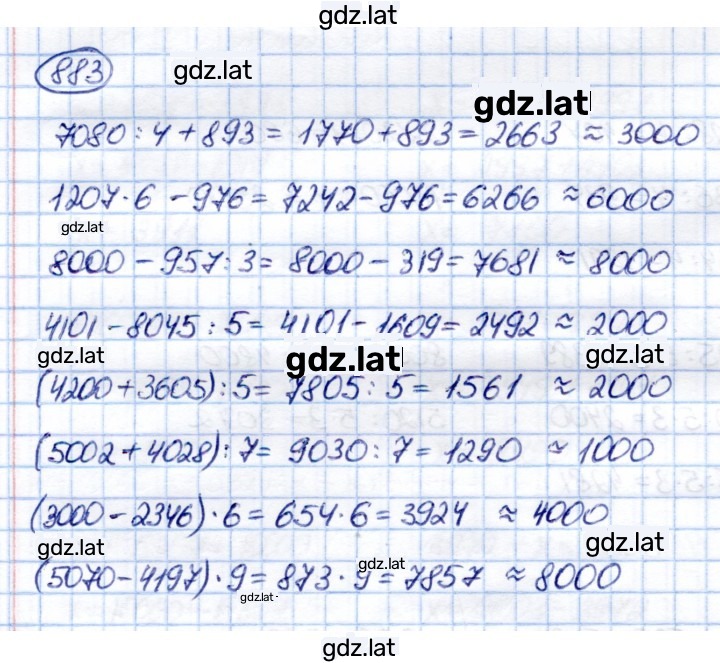 gdz.lat
883
gdz.lat
gdz.lat
7080 : 4 + 893 = 1770 + 893 = 2663 ≈ 3000
1207 · 6 - 976 = 7242 - 976 = 6266 ≈ 6000
gdz.lat
8000 - 957 : 3 = 8000 - 319 = 7681 ≈ 8000
4101 - 8045 : 5 = 4101 - 1609 = 2492 ≈ 2000
gdz.lat gdz.lat gdz.lat
(4200 + 3605) : 5 = 7805 : 5 = 1561 ≈ 2000
(5002 + 4028) : 7 = 9030 : 7 = 1290 ≈ 1000
(3000 - 2346) · 6 = 654 · 6 = 3924 ≈ 4000
gdz.lat gdz.lat
gdz.lat
(5070 - 4197) · 9 = 873 · 9 = 7857 ≈ 8000
gdz.lat
gdz.lat